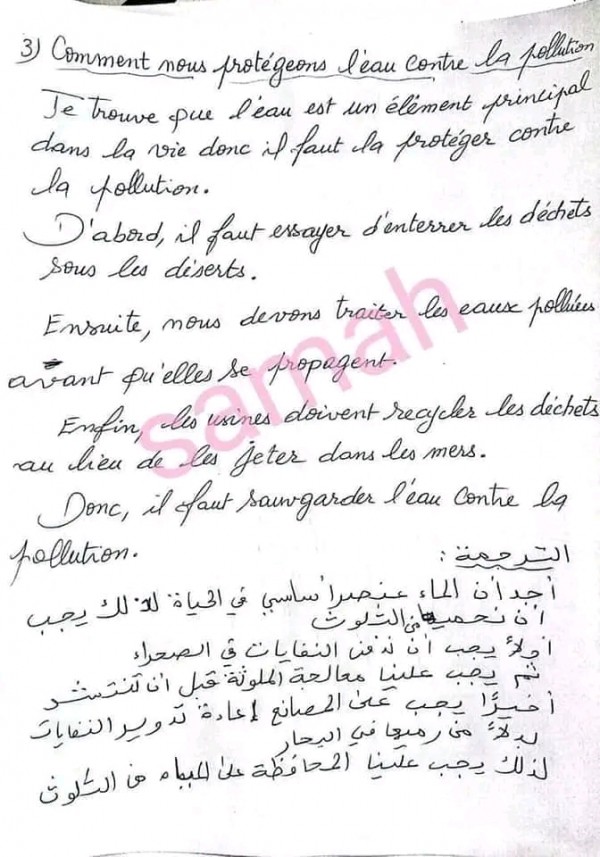 3) Comment nous protégeons l'eau contre la pollution
Je trouve que l'eau est un élément principal
dans la vie donc il faut la protéger contre
la pollution.
D'abord, il faut essayer d'enterrer les déchets
sous les déserts.
Ensuite, nous devons traiter les eaux polluées
avant qu'elles se propagent.
Enfin, les usines doivent recycler les déchets
au lieu de les jeter dans les mers.
Donc, il faut sauvgarder l'eau contre la
pollution.
الترجمة :
أجد أن الماء عنصرا أساسي في الحياة لذلك يجب
أن نحميها من التلوث
أولاً يجب أن ندفن النفايات في الصحراء
ثم يجب علينا معالجة الملوثة قبل أن تنتشر
أخيرًا يجب على المصانع إعادة تدوير النفايات
بدلاً من رميها في البحار
لذلك يجب علينا المحافظة على المياه من التلوث
samah